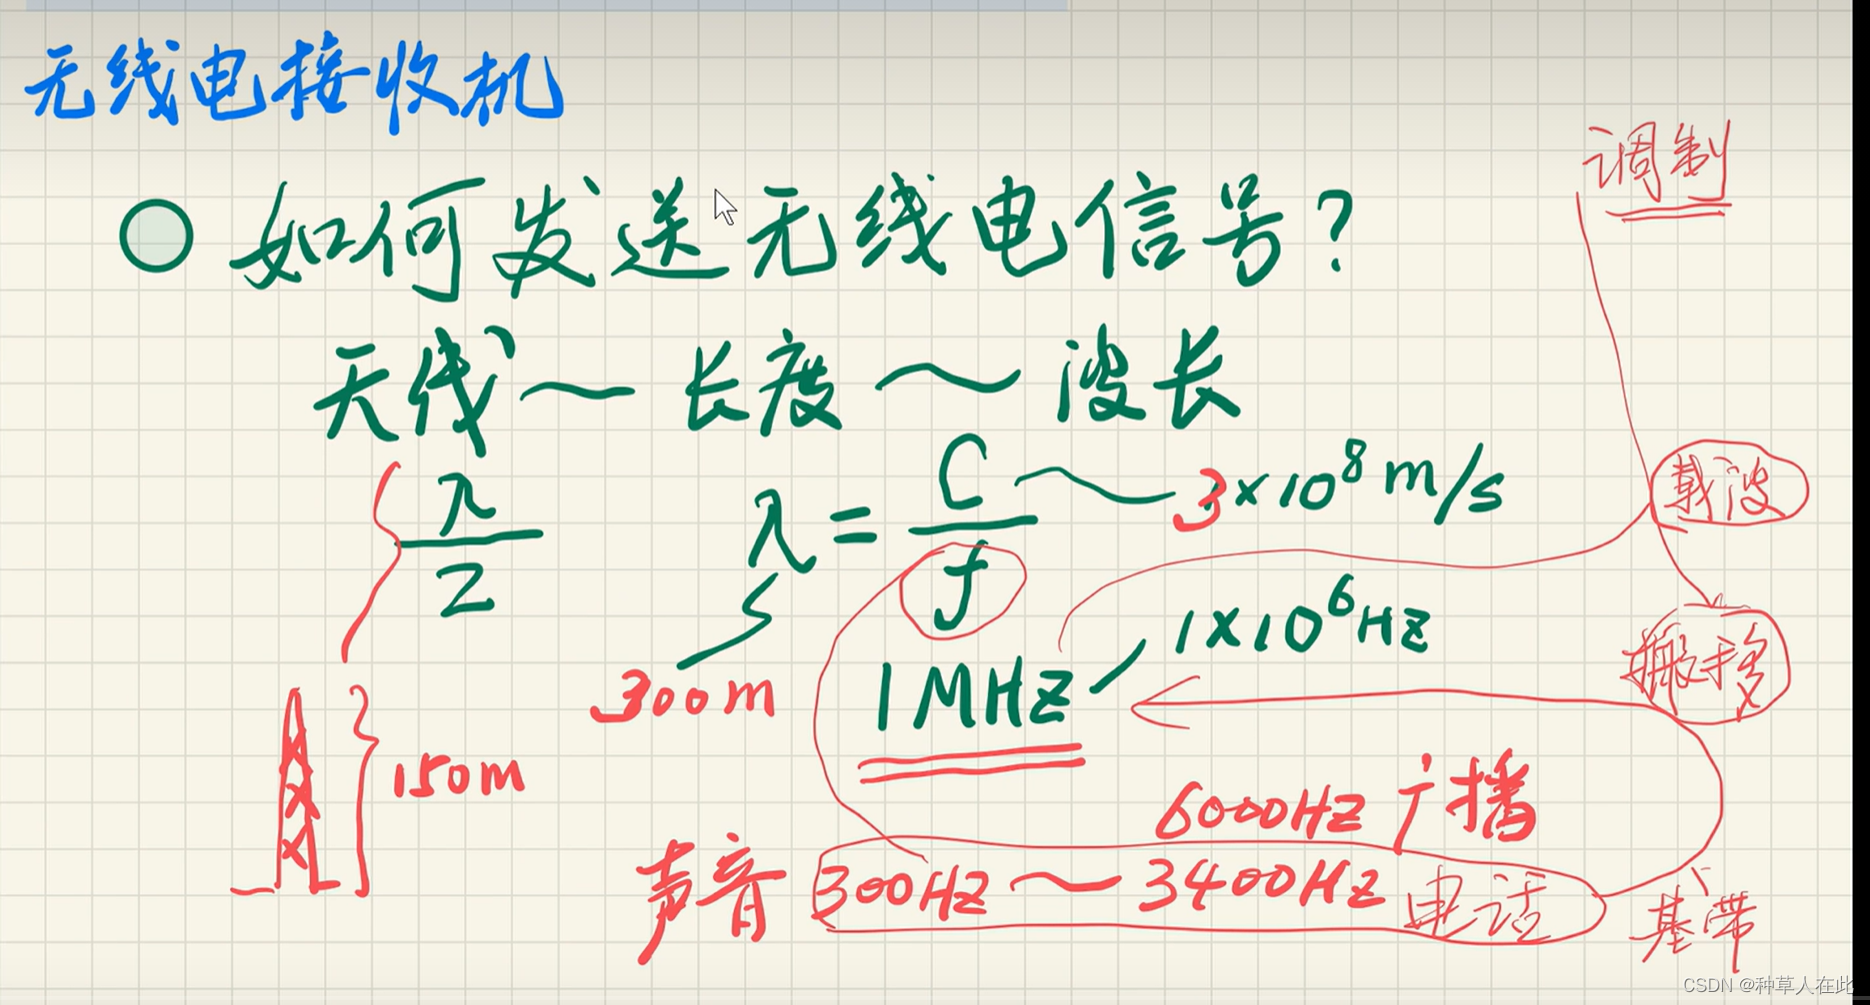 无线电接收机
调制
如何发送无线电信号?
天线~长度~波长
λ/2
λ = C/f
3×10⁸ m/s
载波
1×10⁶Hz
搬移
300m
1MHz
150m
6000Hz 广播
声音 300Hz ~ 3400Hz 电话
基带
CSDN @种草人在此